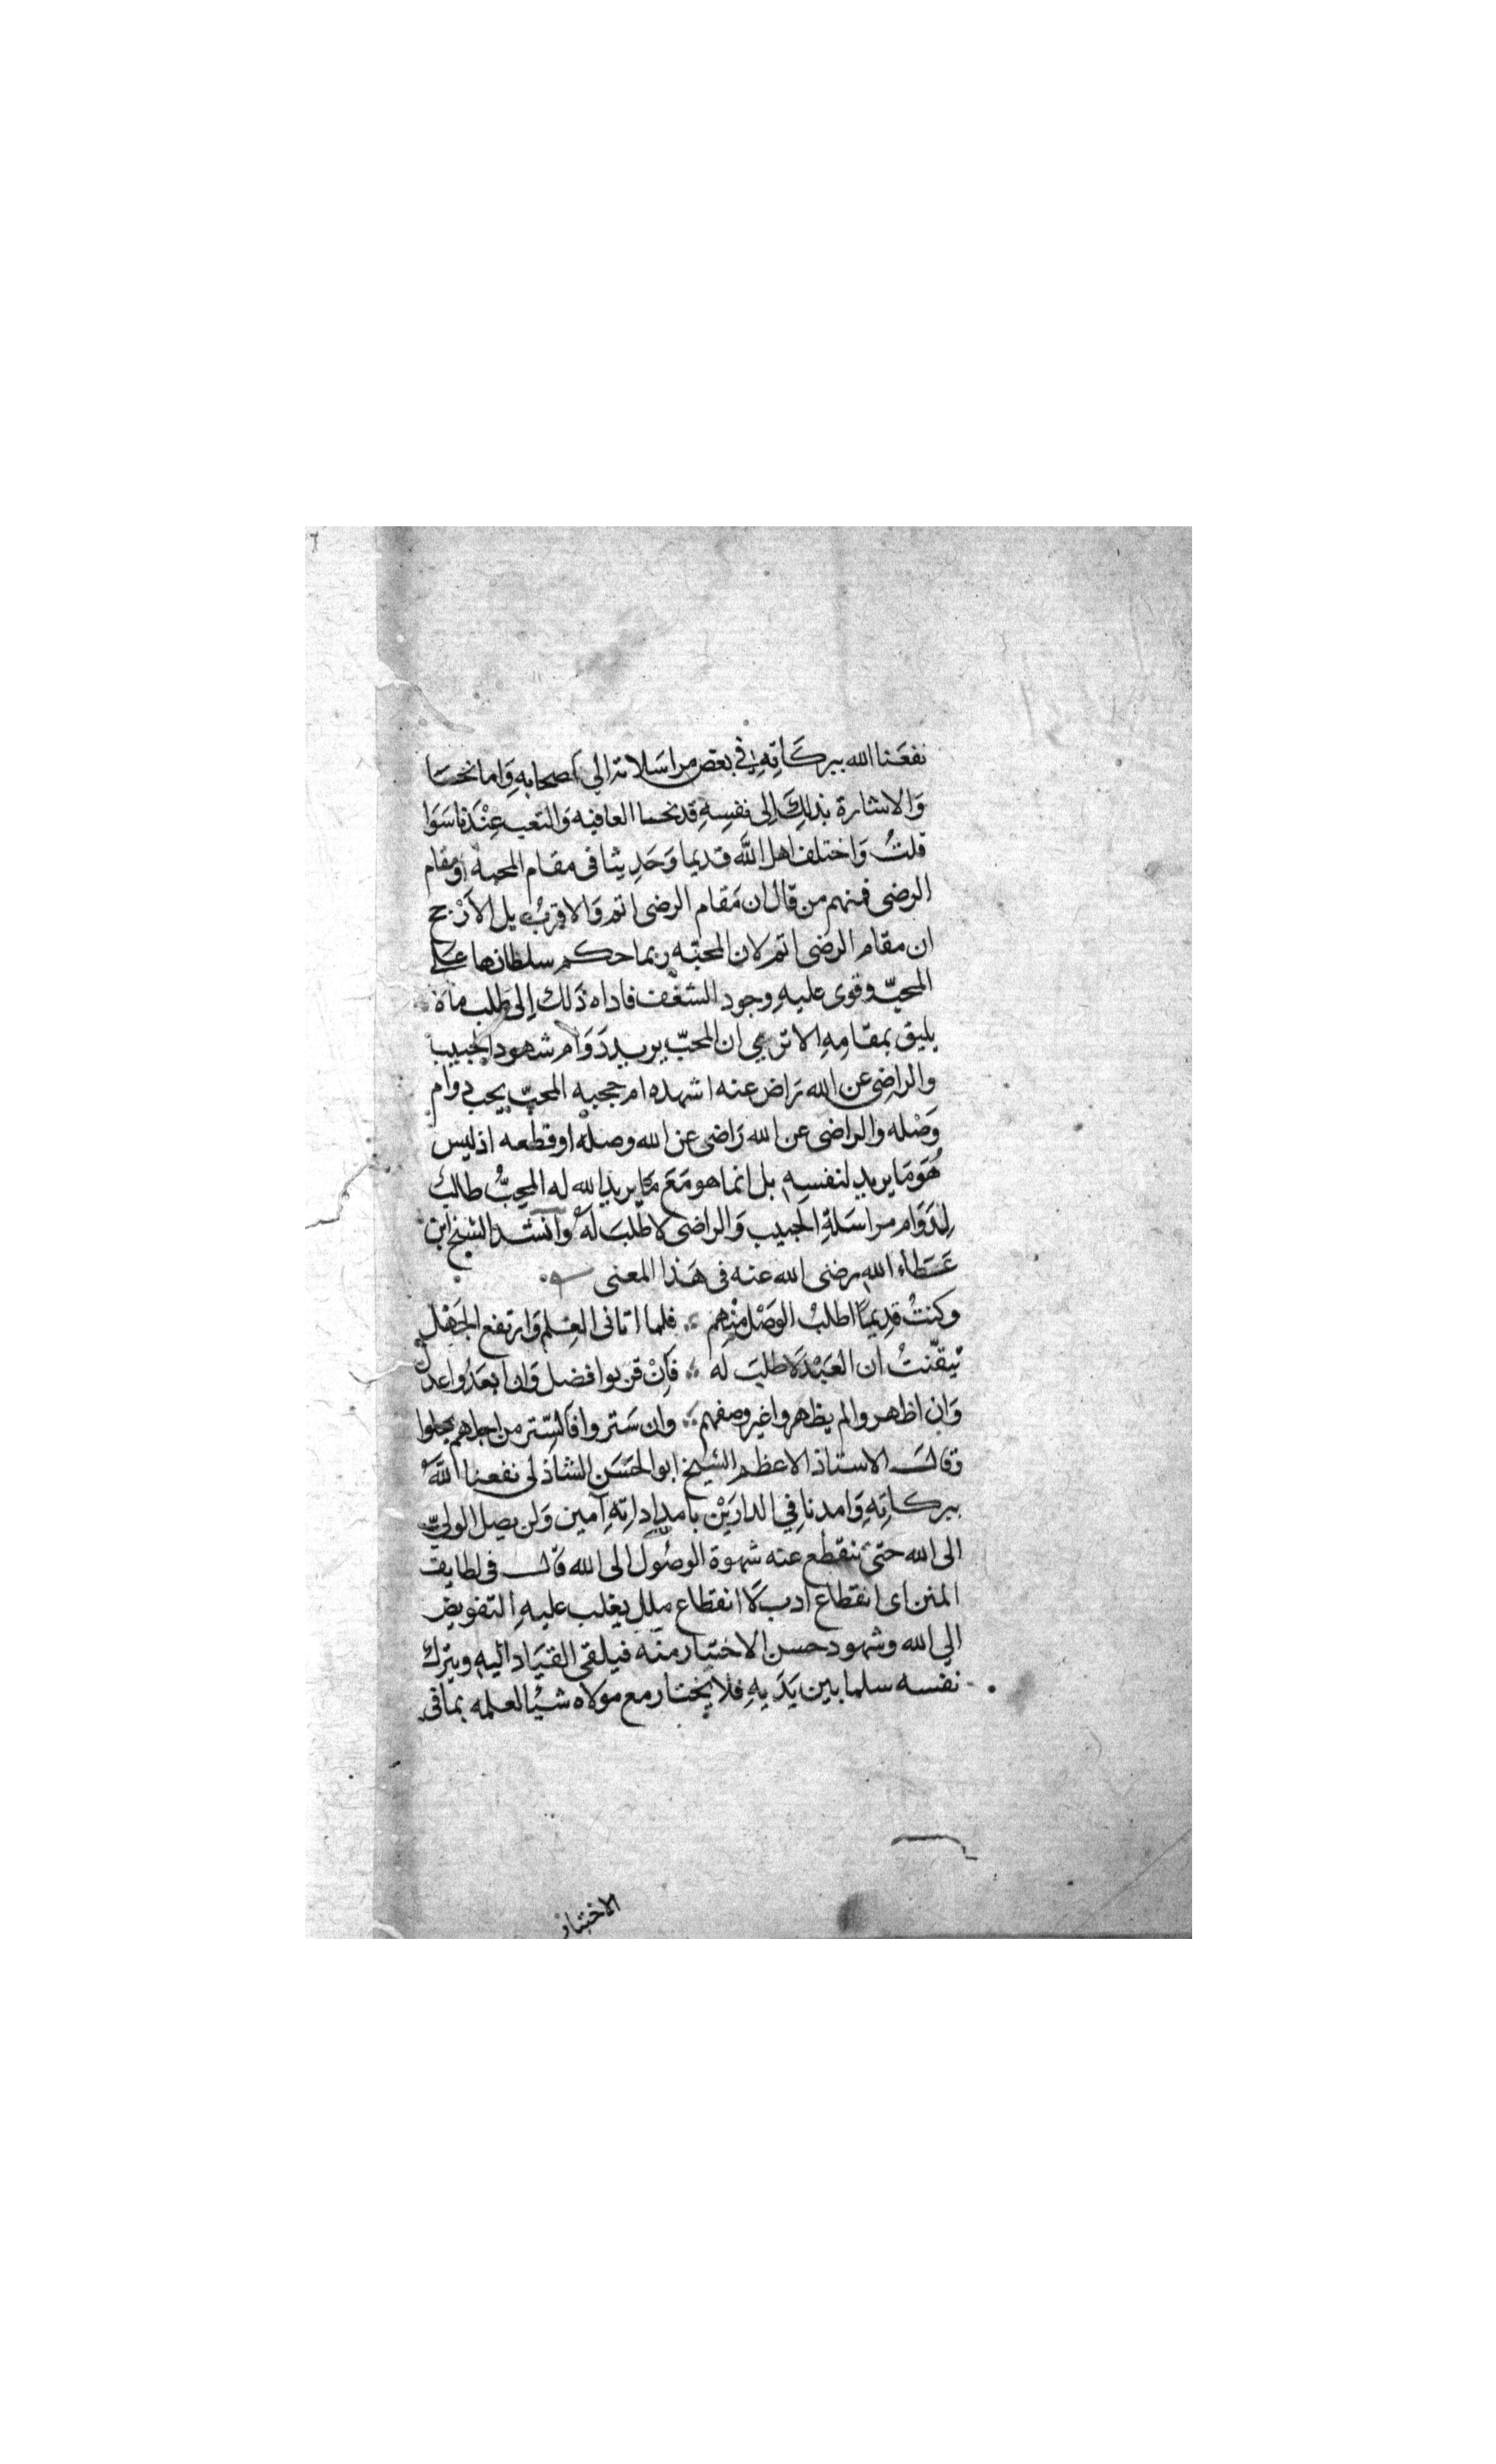 نفعَنا الله ببركَاتِهِ في بعض مراسَلاته الي اصحابهِ وَاما نحسَا
وَالاشارة بذلِكَ اِلى نفسِهِ قد نحسا العافيه وَالتعب عِنْدَنا سَوَا
قلتُ وَاختلف اهل اللّه قديما وَحَدِيثا فى مقام المحبة او مقام
الرضى فمنهم من قال ان مَقام الرضى اتم وَالاقربُ بل الاَرْجح
ان مقام الرضى اتم لان المحبّه ربما حكم سلطانها علَى
المحبّ وقوى عليهِ وجود الشغف فاداه ذَلك اِلى طلب مَا لا
يليق بمقامِهِ الا ترى ان المحبّ يريد دَوَام شهود الحبيب
والراضِى عن الله رَاض عنه اشهده ام حجبه المحبّ يحب دوام
وَصْله والراضى عن الله رَاضى عن الله وصله او قطعه اذ ليس
هُوَ مَا يريد لنفسهِ بل انما هو مَعَ مَا يريد الله له المحبُّ طالب
لِدَوَام مراسَلةِ الحبيب وَالراضى لا طلبَ لَهُ وانشد الشيخ ابن
عَطاء الله رضى الله عنه فى هَذا المعنى
وكنتُ قدِيمًا اطلبُ الوَصْل منْهم ؞ فلما اتانى العِلم وَارتفع الجَهْل
تيقّنتُ ان العَبْدَ لَا طلبَ له ؞ فَاِنْ قربوا فضل وَان ابعَدُوا عدل
وَان اظهروا لم يظهروا غير وصفهم ؞ وان سَتروا فالسّتر من اجلهم يحلوا
وقال الاستاذ الاعظم الشيخ ابو الحَسَن الشاذلى نفعنا اللّه
ببركاتِهِ وَامدنا فِي الدارَيْن بامدادَاتِهِ آمين وَلن يصل الولىّ
الى الله حتىَ تنقطع عنه شهوة الوصُول الى الله قال فى لطايف
المنن اى انقطاع ادب لَا انقطاع ملل يغلب عليهِ التفويض
الي الله وشهود حسن الاختيار منه فيلقى القيَاد اليه ويترك
نفسه سلما بين يَدَيهِ فلا يختار مع مولاه شيْا لعلمه بما فى
الاختيار